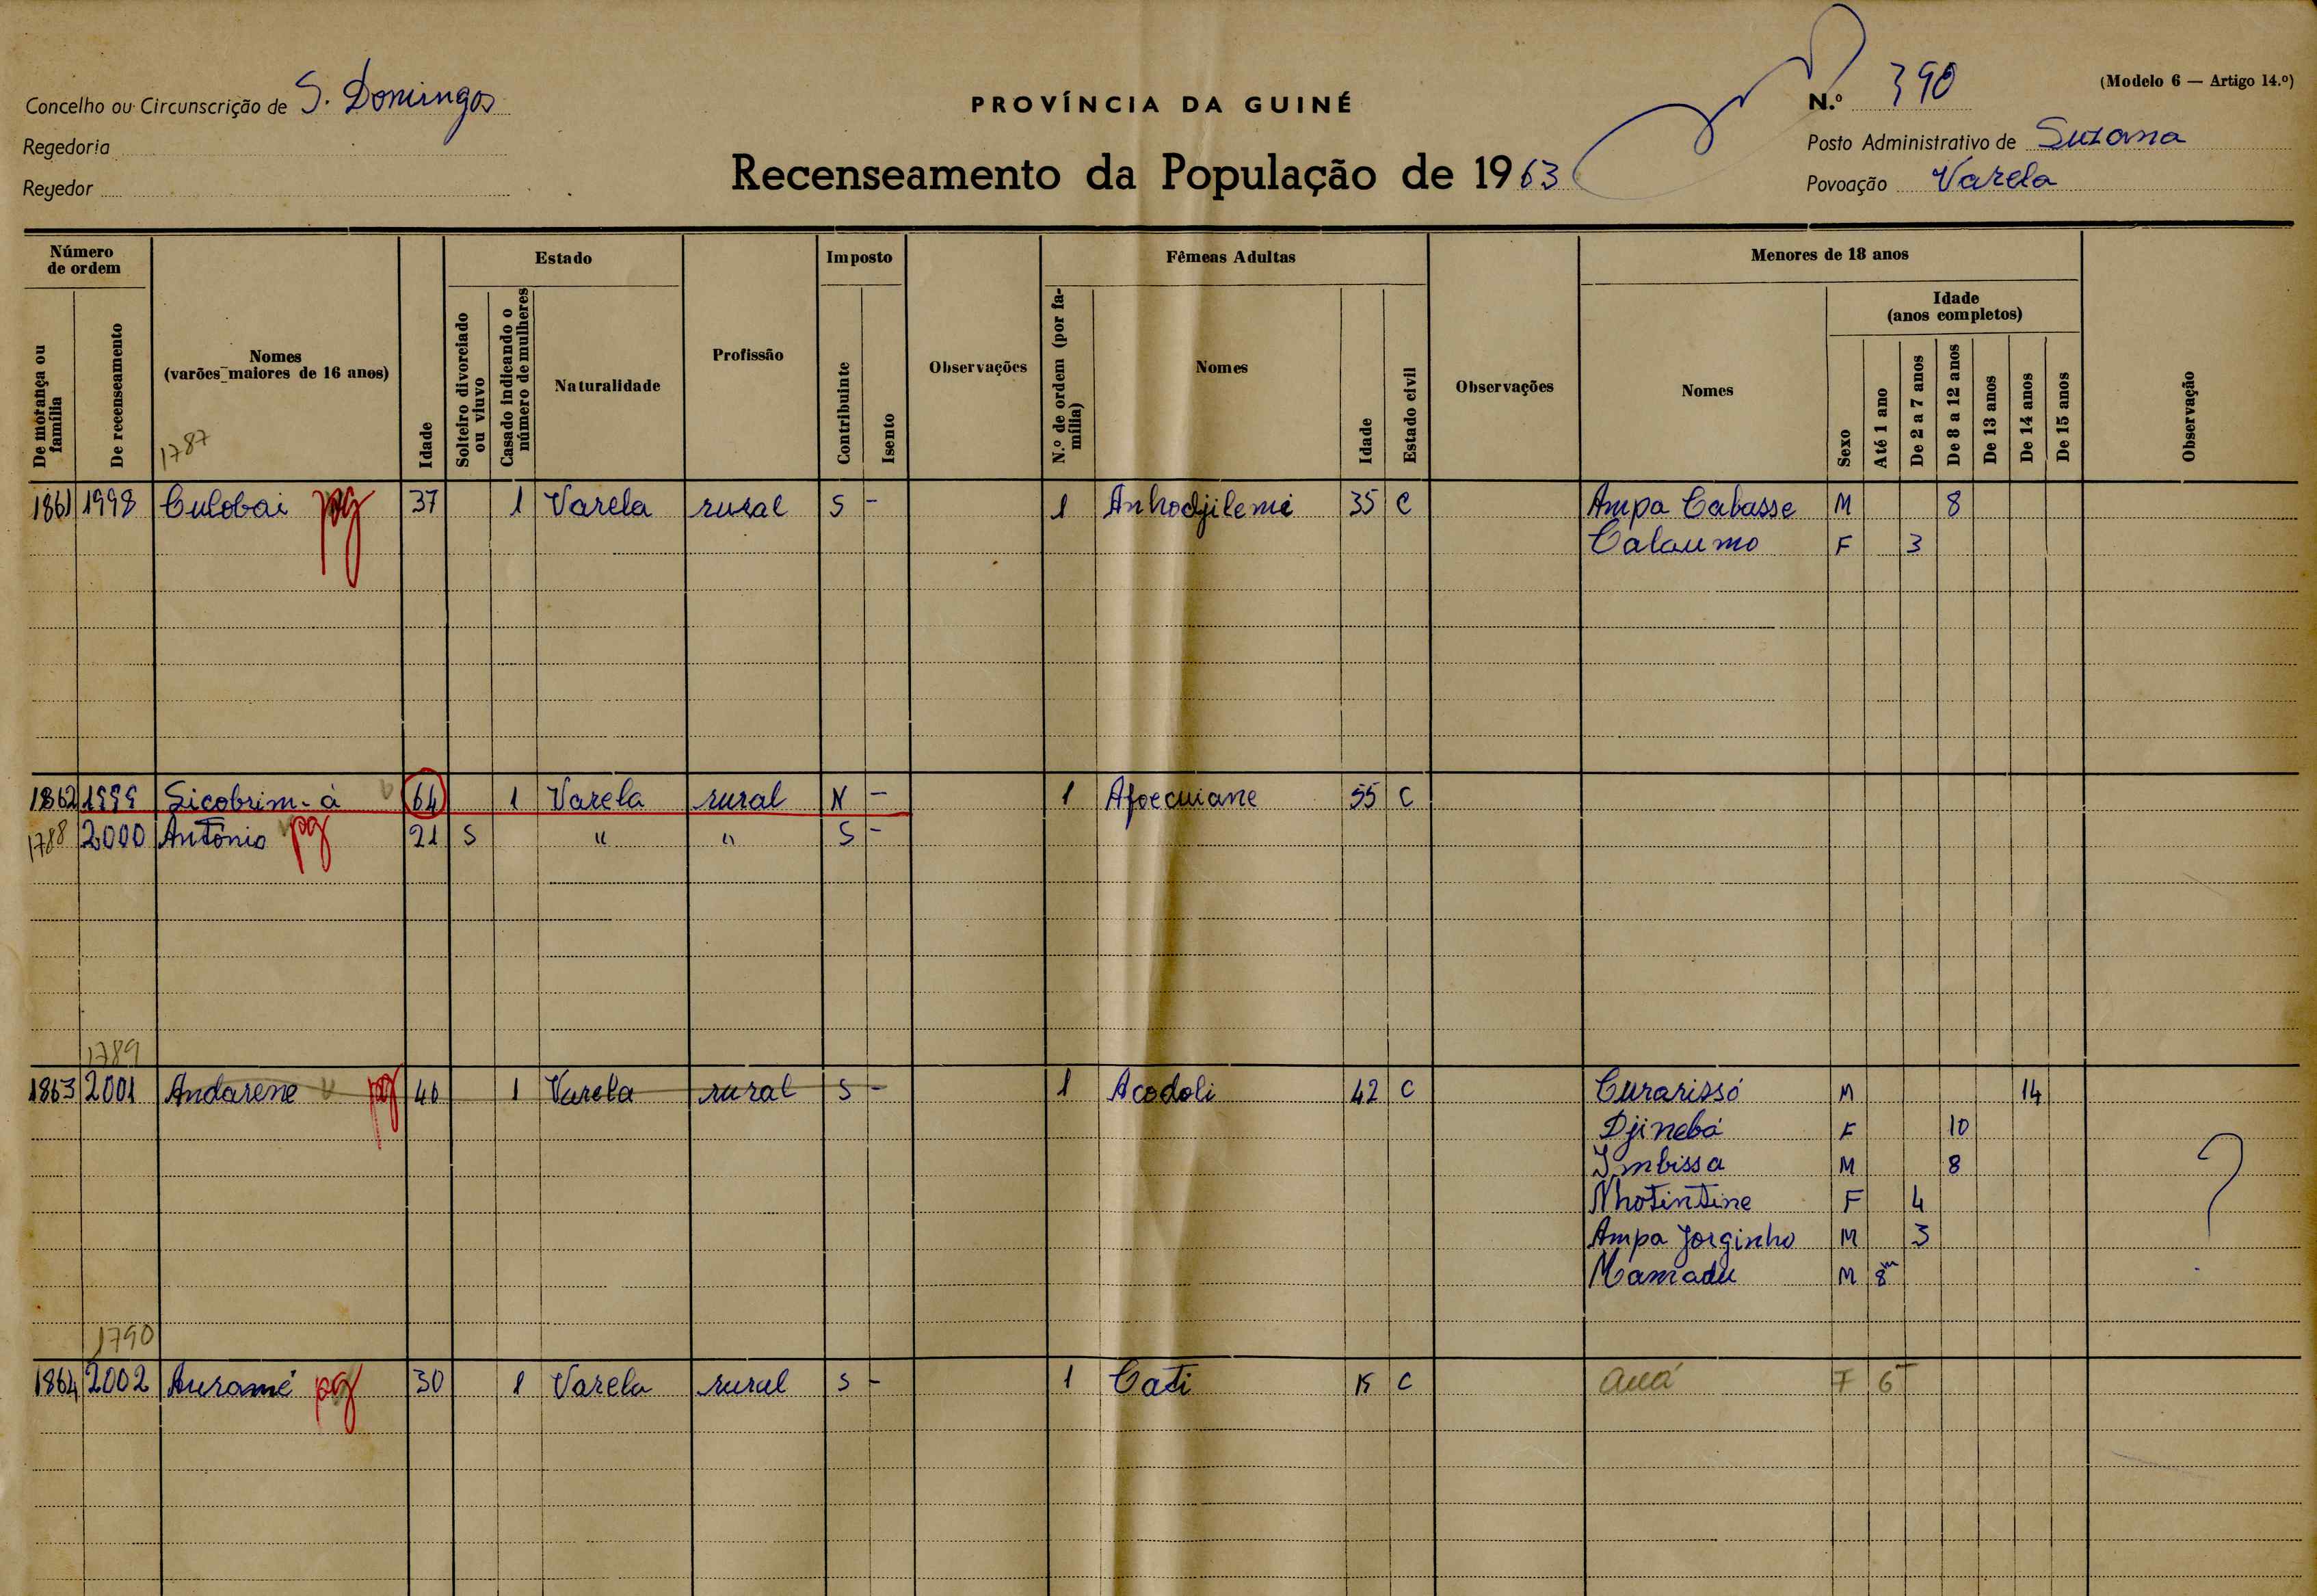 (Modelo 6 — Artigo 14.º)
Concelho ou Circunscrição de S. Domingos
PROVÍNCIA DA GUINÉ
N.º 390
Regedoria
Posto Administrativo de Suzana
Regedor
Recenseamento da População de 1963
Povoação Varela
Número de ordem
De morança ou família
De recenseamento
Nomes
(varões maiores de 16 anos)
1787
Idade
Estado
Solteiro divorciado ou viuvo
Casado indicando o número de mulheres
Naturalidade
Profissão
Imposto
Contribuinte
Isento
Observações
Fêmeas Adultas
N.º de ordem (por família)
Nomes
Idade
Estado civil
Observações
Menores de 18 anos
Nomes
Idade
(anos completos)
Sexo
Até 1 ano
De 2 a 7 anos
De 8 a 12 anos
De 13 anos
De 14 anos
De 15 anos
Observação
1861 1998 Culobai pg 37 1 Varela rural S - 1 Anhodjilemi 35 C Ampa Cabasse M 8
Calaumo F 3
1862 1999 Sicobrim-à 64 1 Varela rural N - 1 Afoecuiane 55 C
1788 2000 António pg 21 S " " S -
1789
1863 2001 Andarene pg 46 1 Varela rural S - 1 Acodoli 42 C Curarissó M 14
Djinebá F 10
Imbissa M 8
Nhotintine F 4
Ampa Jorginho M 3
Mamadu M 8m
?
1790
1864 2002 Auramé pg 30 1 Varela rural S - 1 Cati C Auá F 6